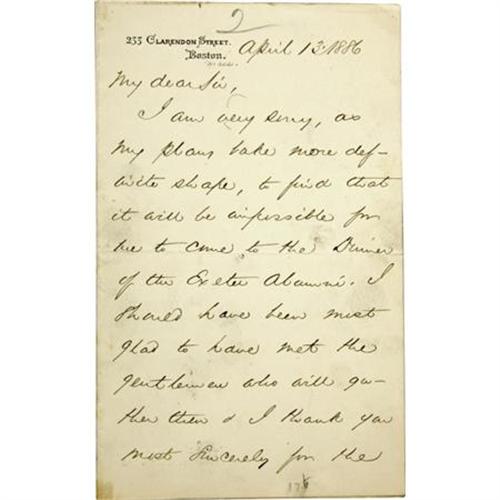 2
233 Clarendon Street.
Boston.
April 13. 1886
My dear Sir,
I am very sorry, as
my plans take more def-
inite shape, to find that
it will be impossible for
me to come to the Dinner
of the Exeter Alumni. I
should have been most
glad to have met the
gentlemen who will ga-
ther then & I thank you
most sincerely for the